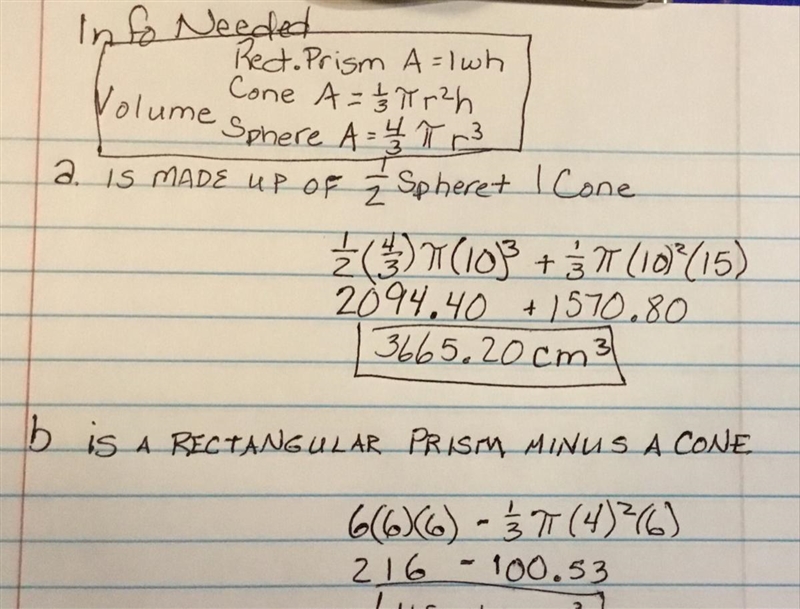 Info Needed
Rect. Prism A = lwh
Volume Cone A = 1/3 πr²h
Sphere A = 4/3 π r³
a. IS MADE UP OF 1/2 Sphere + 1 Cone
1/2 (4/3) π(10)³ + 1/3 π(10)²(15)
2094.40 + 1570.80
3665.20 cm³
b IS A RECTANGULAR PRISM MINUS A CONE
6(6)(6) - 1/3 π(4)²(6)
216 - 100.53